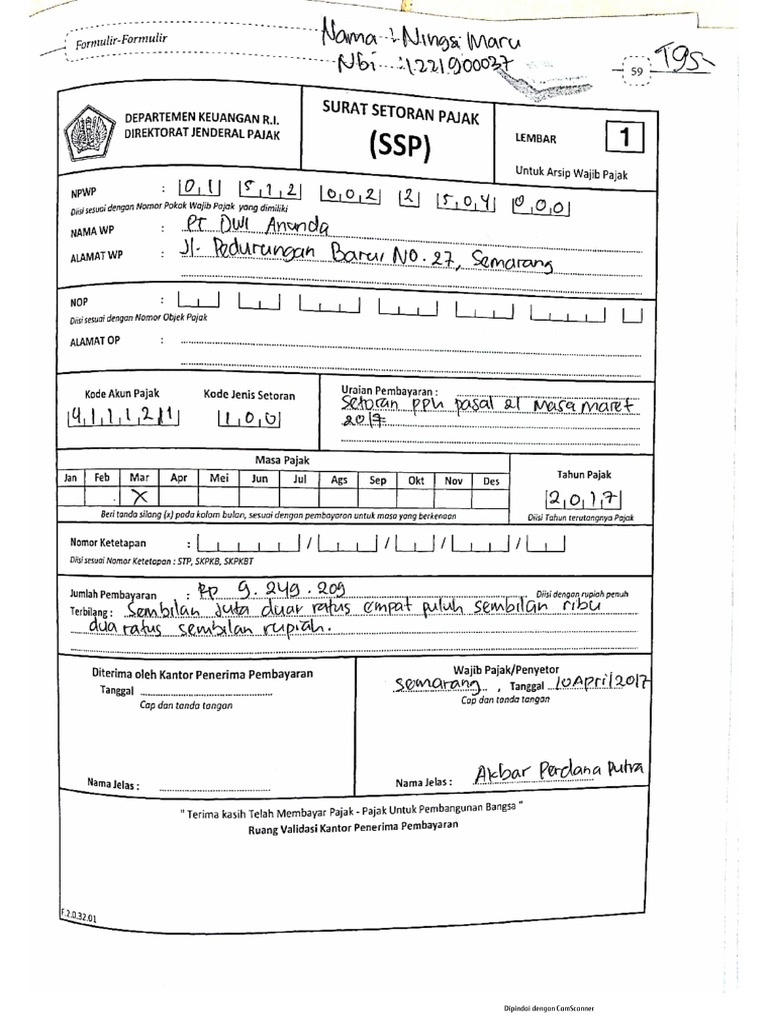 Formulir-Formulir
Nama : Ningsi Maru
Nbi : 1221900037
59
DEPARTEMEN KEUANGAN R.I.
DIREKTORAT JENDERAL PAJAK
SURAT SETORAN PAJAK
(SSP)
LEMBAR 1
Untuk Arsip Wajib Pajak
NPWP : 01 512 002 2 504 000
Diisi sesuai dengan Nomor Pokok Wajib Pajak yang dimiliki
NAMA WP : PT DWI Ananda
ALAMAT WP : Jl. Pedurungan Baru, NO. 27, Semarang
NOP :
Diisi sesuai dengan Nomor Objek Pajak
ALAMAT OP :
Kode Akun Pajak
411121
Kode Jenis Setoran
100
Uraian Pembayaran :
Setoran pph pasal 21 Masa maret
2017
Masa Pajak
Jan Feb Mar Apr Mei Jun Jul Ags Sep Okt Nov Des
X
Beri tanda silang (x) pada kolom bulan, sesuai dengan pembayaran untuk masa yang berkenaan
Tahun Pajak
2017
Diisi Tahun terutangnya Pajak
Nomor Ketetapan : / / / /
Diisi sesuai Nomor Ketetapan : STP, SKPKB, SKPKBT
Jumlah Pembayaran : Rp 9.249.209 Diisi dengan rupiah penuh
Terbilang : Sembilan Juta duar ratus empat puluh sembilan ribu
dua ratus sembilan rupiah.
Diterima oleh Kantor Penerima Pembayaran
Tanggal
Cap dan tanda tangan
Nama Jelas :
Wajib Pajak/Penyetor
Semarang , Tanggal 10 April/2017
Cap dan tanda tangan
Nama Jelas : Akbar Perdana Putra
" Terima kasih Telah Membayar Pajak - Pajak Untuk Pembangunan Bangsa "
Ruang Validasi Kantor Penerima Pembayaran
F.2.0.32.01
Dipindai dengan CamScanner